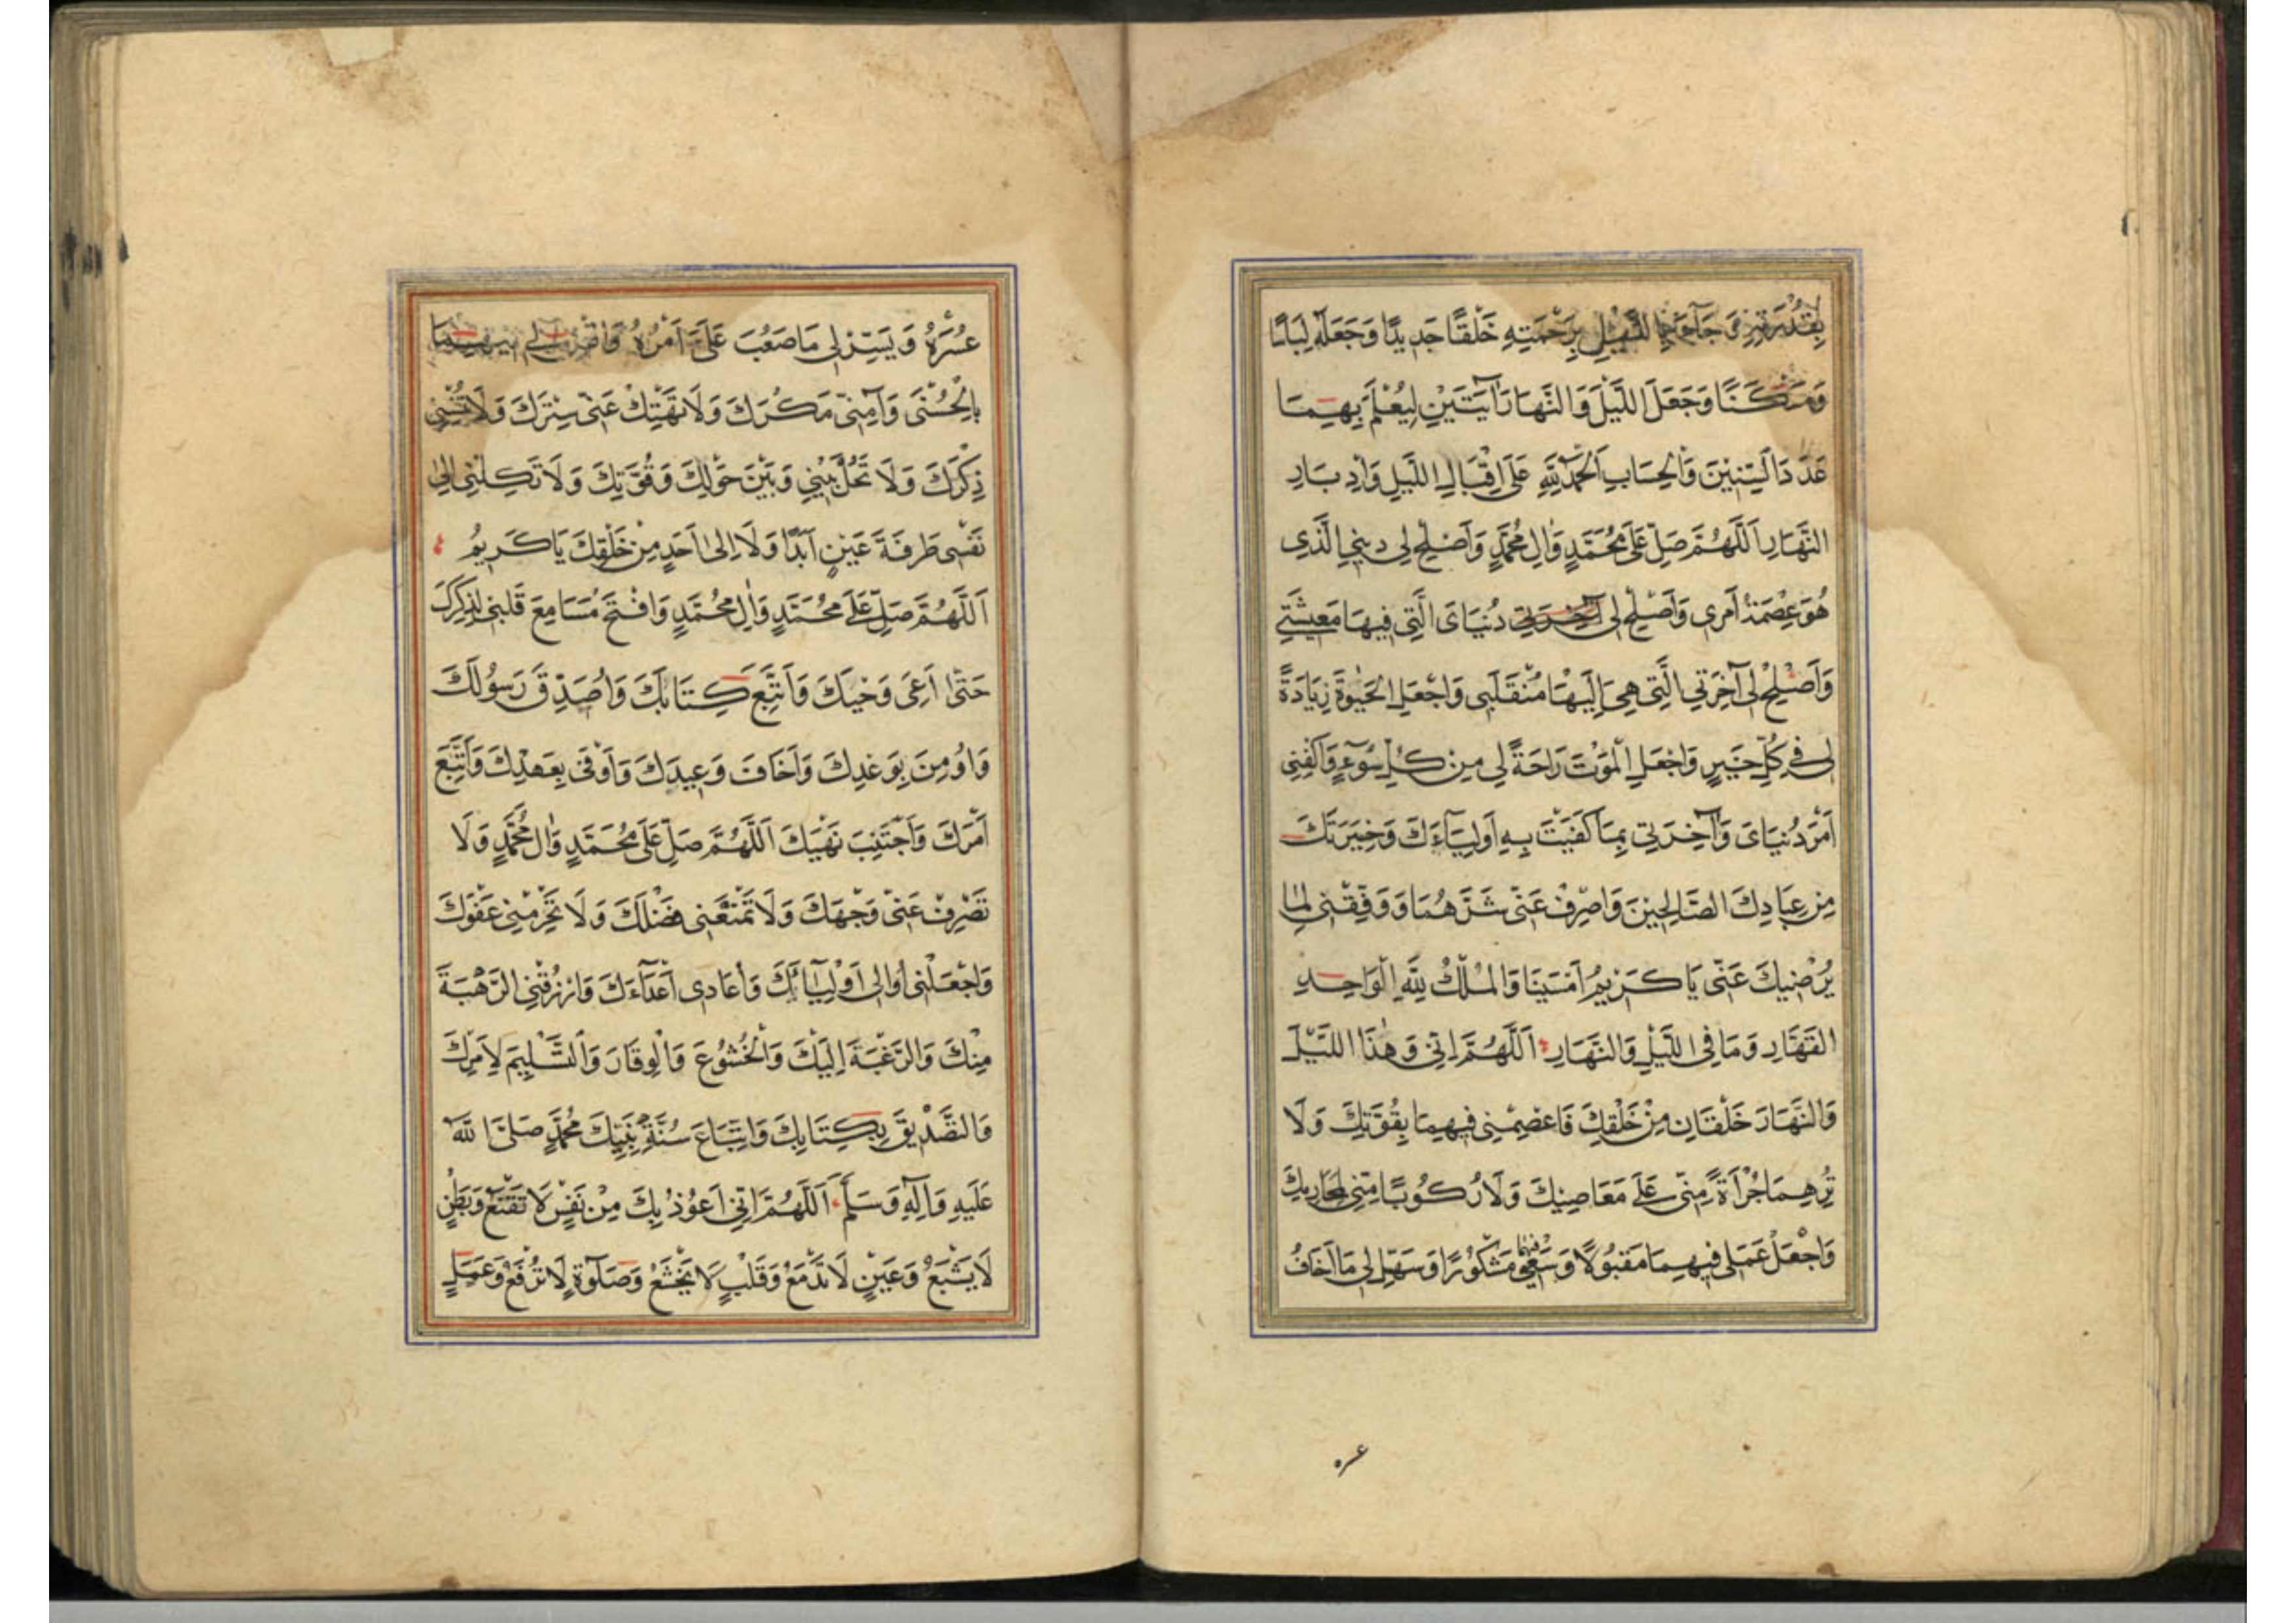 بِقُدْرَتِهِ وَجَآءَ بِاللَّيْلِ بِرَحْمَتِهِ خَلْقًا جَدِيدًا وَجَعَلَهُ لِبَاسًا
وَمَسْكَنًا وَجَعَلَ اللَّيْلَ وَالنَّهَارَ آيَتَيْنِ لِيُعْلَمَ بِهِمَا
عَدَدَ السِّنِينَ وَالْحِسَابِ اَلْحَمْدُ لِلَّهِ عَلَى اِقْبَالِ اللَّيْلِ وَاِدْبَارِ
النَّهَارِ اَللَّهُمَّ صَلِّ عَلَى مُحَمَّدٍ وَاٰلِ مُحَمَّدٍ وَاَصْلِحْ لِى دِينِيَ الَّذِى
هُوَ عِصْمَةُ اَمْرِى وَاَصْلِحْ لِى دُنْيَاىَ الَّتِى فِيهَا مَعِيشَتِى
وَاَصْلِحْ لِى آخِرَتِي الَّتِى هِىَ اِلَيْهَا مُنْقَلَبِى وَاجْعَلِ الْحَيٰوةَ زِيَادَةً
لِى فِى كُلِّ خَيْرٍ وَاجْعَلِ الْمَوْتَ رَاحَةً لِى مِنْ كُلِّ سُوٓءٍ وَاكْفِنِى
اَمْرَ دُنْيَاىَ وَآخِرَتِى بِمَا كَفَيْتَ بِهِ اَوْلِيَآءَكَ وَخِيَرَتَكَ
مِنْ عِبَادِكَ الصَّالِحِينَ وَاصْرِفْ عَنِّى شَرَّهُمَا وَوَفِّقْنِى لِمَا
يُرْضِيكَ عَنِّى يَا كَرِيمُ اَمْسَيْنَا وَالْمُلْكُ لِلَّهِ الْوَاحِدِ
الْقَهَّارِ وَمَا فِى اللَّيْلِ وَالنَّهَارِ اَللَّهُمَّ اِنِّى وَهٰذَا اللَّيْلَ
وَالنَّهَارَ خَلْقَانِ مِنْ خَلْقِكَ فَاعْصِمْنِى فِيهِمَا بِقُوَّتِكَ وَلَا
تُرِهِمَا جُرْأَةً مِنِّى عَلَى مَعَاصِيكَ وَلَا رُكُوبًا مِنِّى لِمَحَارِمِكَ
وَاجْعَلْ عَمَلِى فِيهِمَا مَقْبُولًا وَسَعْيِى فيهما مَشْكُورًا وَسَهِّلْ لِى مَا اَخَافُ
عسره
عُسْرَهُ وَيَسِّرْ لِى مَا صَعُبَ عَلَىَّ اَمْرُهُ وَاقْضِ لِى فِيهِمَا
بِالْحُسْنَى وَآمِنِّى مَكْرَكَ وَلَا تَهْتِكْ عَنِّى سِتْرَكَ وَلَا تُنْسِنِى
ذِكْرَكَ وَلَا تَحُلْ بَيْنِى وَبَيْنَ حَوْلِكَ وَقُوَّتِكَ وَلَا تَكِلْنِى اِلَى
نَفْسِى طَرْفَةَ عَيْنٍ اَبَدًا وَلَا اِلَى اَحَدٍ مِنْ خَلْقِكَ يَا كَرِيمُ
اَللَّهُمَّ صَلِّ عَلَى مُحَمَّدٍ وَاٰلِ مُحَمَّدٍ وَافْتَحْ مَسَامِعَ قَلْبِى لِذِكْرِكَ
حَتّٰى اَعِىَ وَحْيَكَ وَاَتَّبِعَ كِتَابَكَ وَاُصَدِّقَ رَسُولَكَ
وَاُومِنَ بِوَعْدِكَ وَاَخَافَ وَعِيدَكَ وَاَوْفَى بِعَهْدِكَ وَاَتَّبِعَ
اَمْرَكَ وَاَجْتَنِبَ نَهْيَكَ اَللَّهُمَّ صَلِّ عَلَى مُحَمَّدٍ وَاٰلِ مُحَمَّدٍ وَلَا
تَصْرِفْ عَنِّى وَجْهَكَ وَلَا تَمْنَعْنِى فَضْلَكَ وَلَا تَحْرِمْنِى عَفْوَكَ
وَاجْعَلْنِى اُوَالِى اَوْلِيَآئَكَ وَاُعَادِى اَعْدَآءَكَ وَارْزُقْنِى الرَّهْبَةَ
مِنْكَ وَالرَّغْبَةَ اِلَيْكَ وَالْخُشُوعَ وَالْوِقَارَ وَالتَّسْلِيمَ لِاَمْرِكَ
وَالتَّصْدِيقَ بِكِتَابِكَ وَاتِّبَاعَ سُنَّةِ نَبِيِّكَ مُحَمَّدٍ صَلَّى اللَّهُ
عَلَيْهِ وَاٰلِهِ وَسَلَّمَ اَللَّهُمَّ اِنِّى اَعُوذُ بِكَ مِنْ نَفْسٍ لَا تَقْنَعُ وَبَطْنٍ
لَا يَشْبَعُ وَعَيْنٍ لَا تَدْمَعُ وَقَلْبٍ لَا يَخْشَعُ وَصَلٰوةٍ لَا تُرْفَعُ وَعَمَلٍ